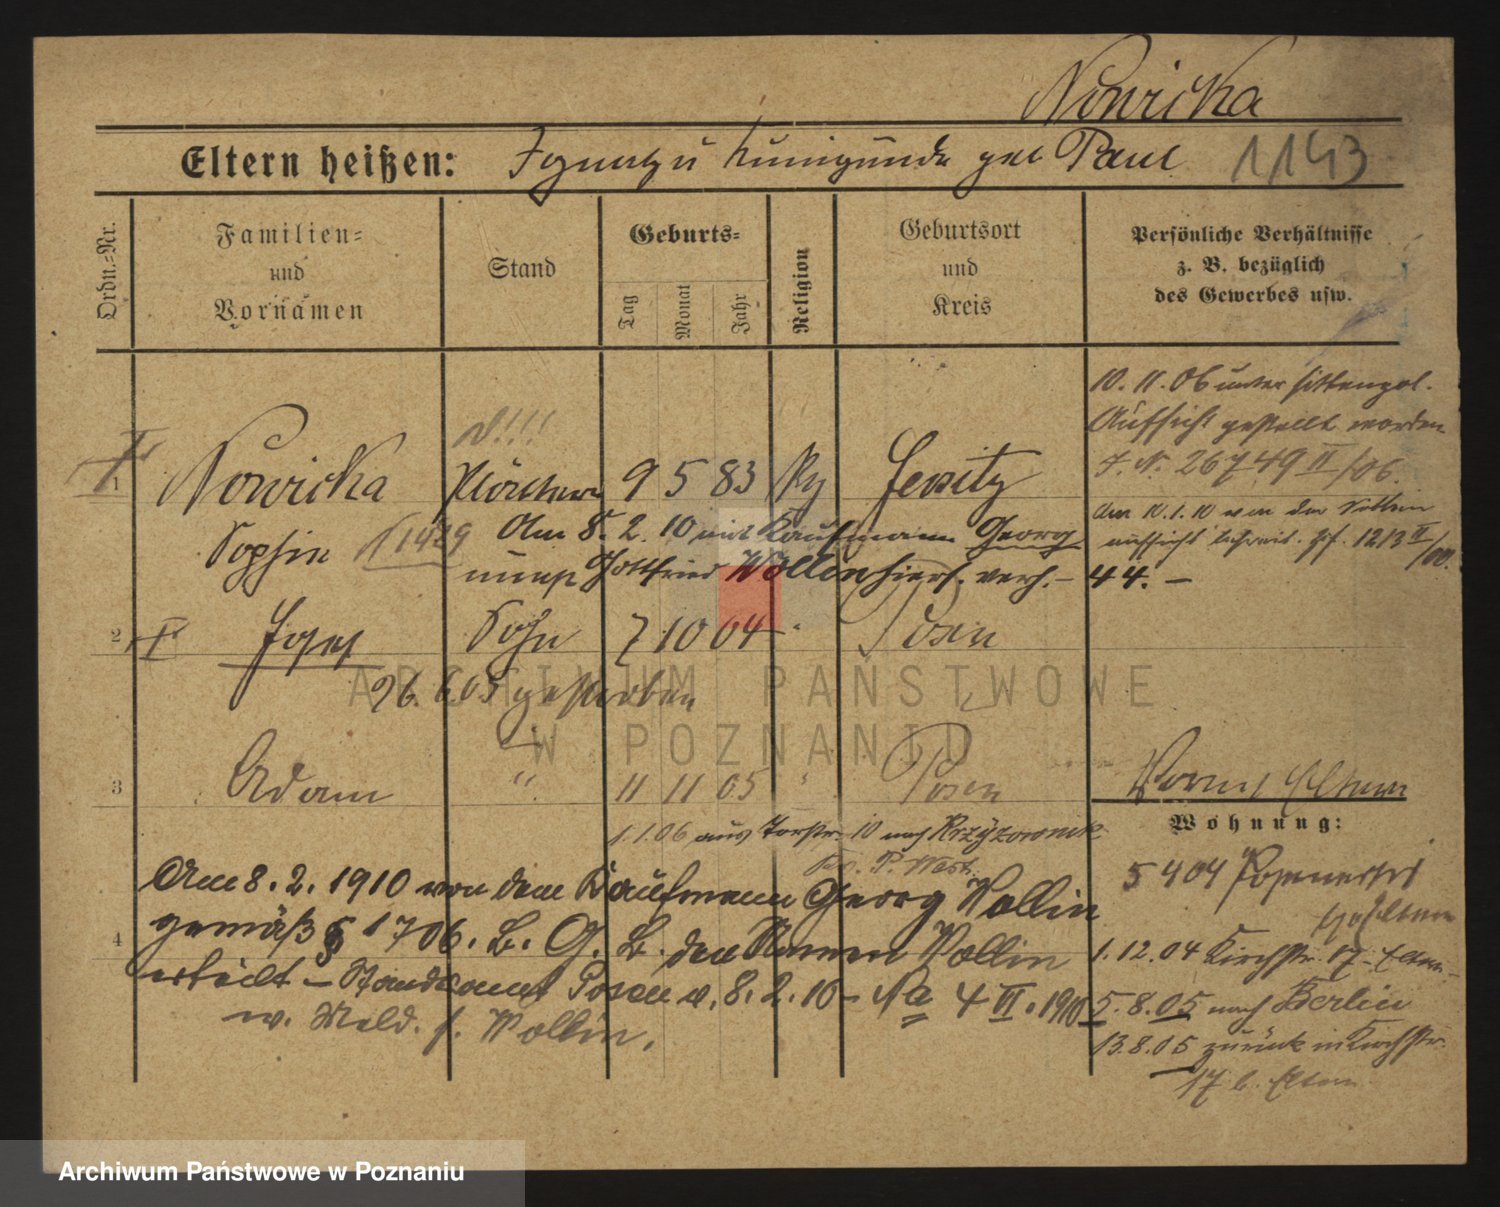 Nowicka
Eltern heißen: Ignatz u Kunigunde geb Paul 1143
Ordn.-Nr.
Familien-
und
Vornamen
Stand
Geburts-
Tag
Monat
Jahr
Religion
Geburtsort
und
Kreis
Persönliche Verhältnisse
z. B. bezüglich
des Gewerbes usw.
10. 11. 06 unter sittenpol.
Aufsicht gestellt worden
J. N. 26749 II/06.
1 Nowicka 9 5 83 Jersitz
Am 10.1.10 von der Sitten
aufsicht befreit. 1213 II
Sophie 1429 Am 8. 2. 10 mit Kaufmann Georg
Gottfried Wollin hiers. verh. – 44. –
2 Josef Sohn 7 10 04 Posen
26. 6.05 gestorben
3 Adam " 11 11 05 " Posen
1.1.06 aus Torstr. 10 nach Krzyżownik
P. West.
Am 8. 2. 1910 von dem Kaufmann Georg Wollin
gemäß § 1706. B. G. B. den Namen Wollin
4
erteilt – Standesamt Posen v. 8. 2. 10 – 4 VI. 1910
w. Meld. s. Wollin.
Eltern
Wohnung:
5404
1. 12. 04 Kirchstr. 17 – Eltern –
5. 8. 05 nach Berlin
13. 8. 05 zurück in Kirchstr.
17 b. Eltern
ARCHIWUM PAŃSTWOWE
W POZNANIU
Archiwum Państwowe w Poznaniu